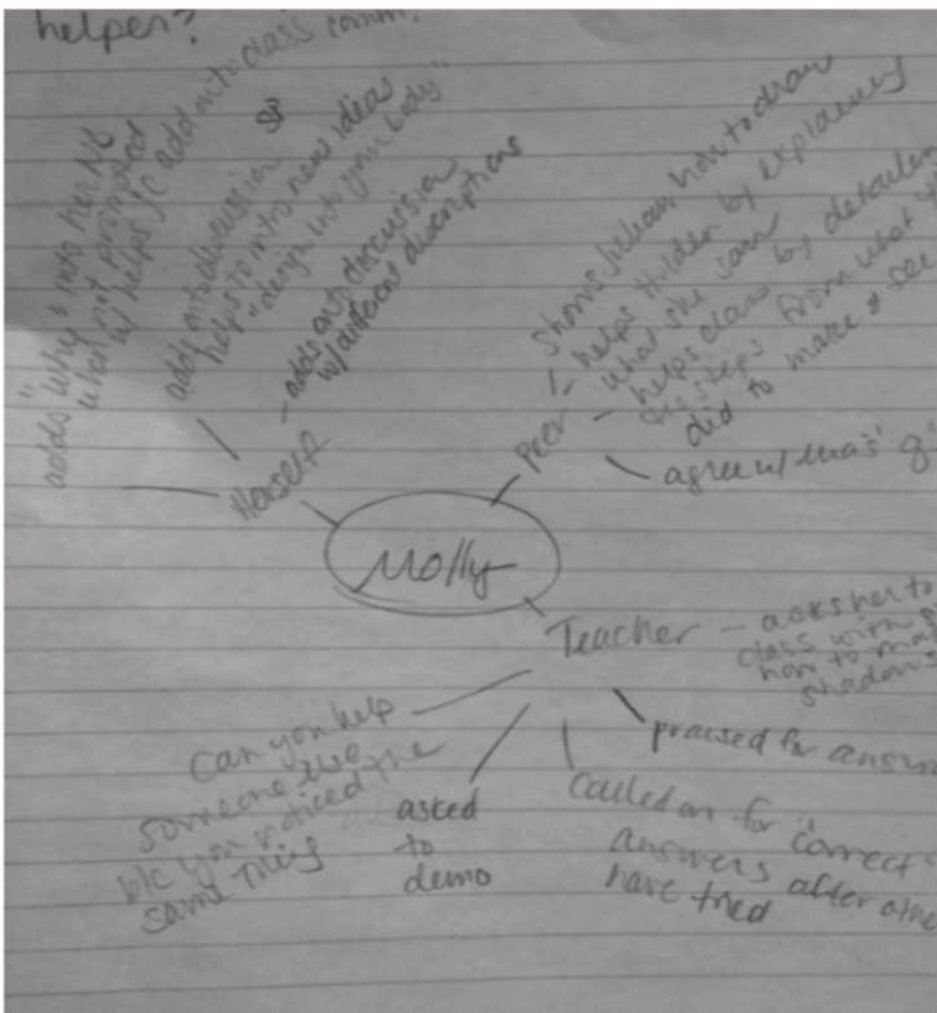 helper?
adds "why" into her NB
when not prompted
w/ helps JC add on to class comm.
adds onto discussion
helps to intro new ideas
"design into your body"
- adds onto discussion
w/ different discriptions
Herself
Molly
Peer
shows how to draw
- helps Holden by explaining
what she saw
- helps class by
the steps from what
did to make & see
agree w/
Teacher - asks her to
class with
how to
shadows
praised for
called on for "correct"
answers after
have tried
asked
to
demo
can you help
someone else
b/c you noticed the
same thing